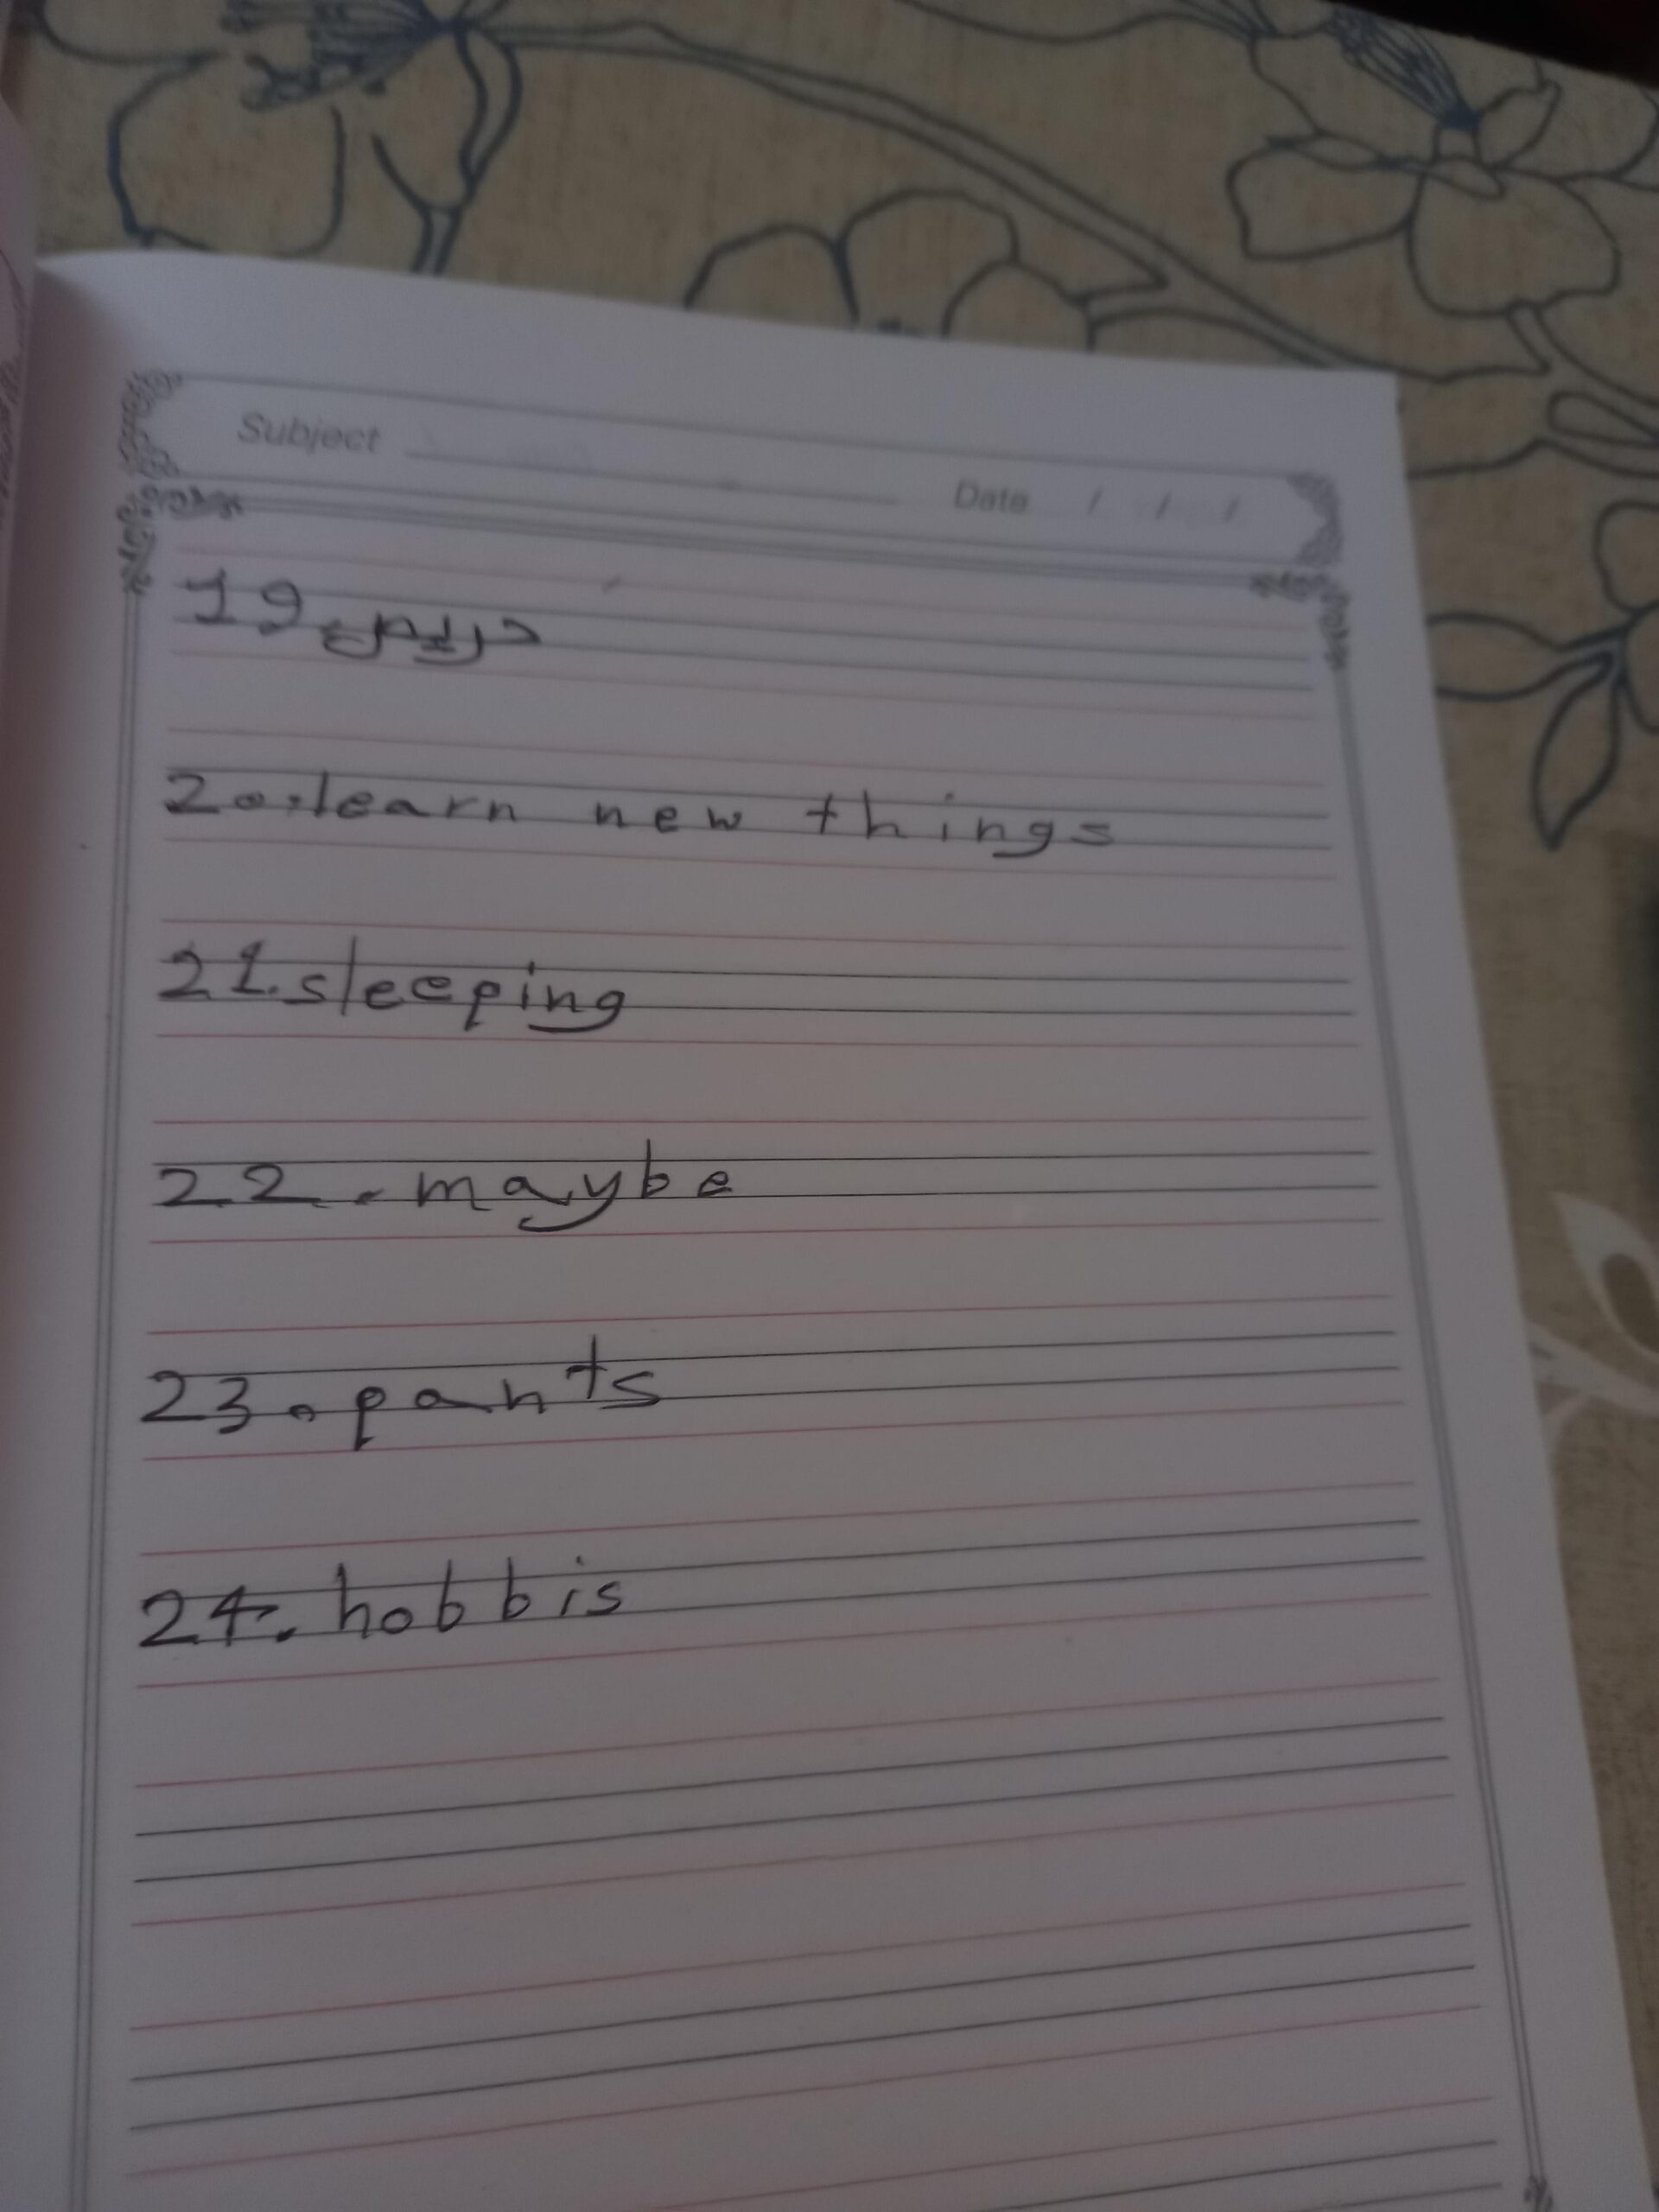 Subject
Date / / /
19.
20.learn new things
21.sleeping
22.maybe
23.pants
24.hobbis